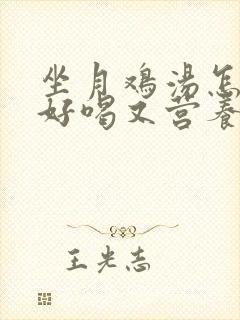 坐月鸡汤怎
好喝又营养
王光志